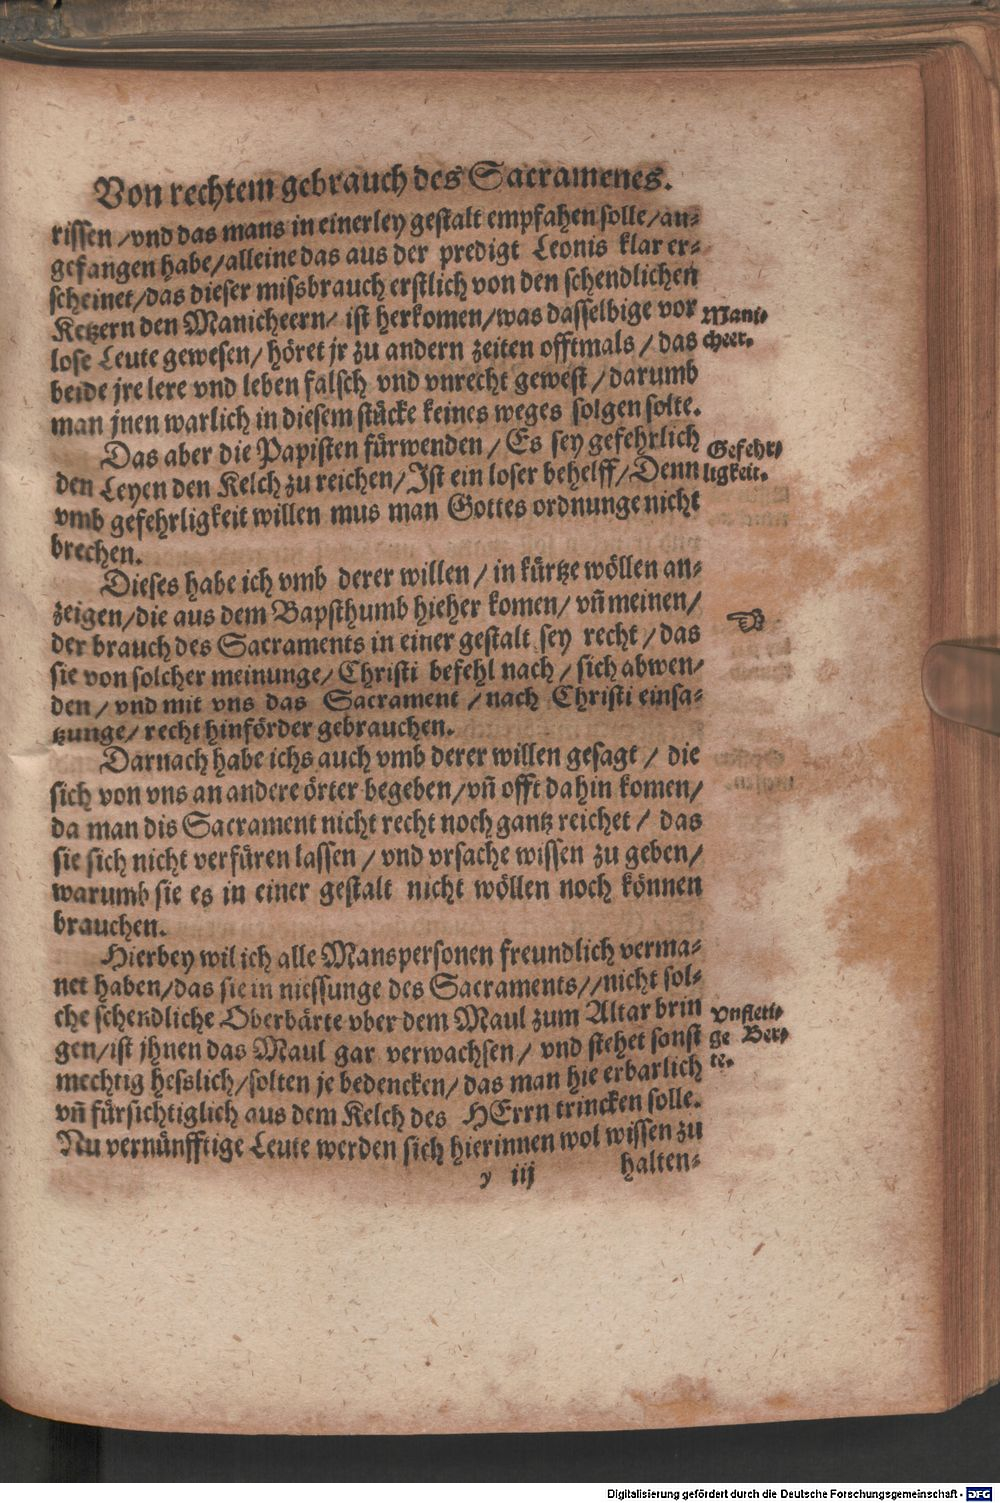 Von rechtem gebrauch des Sacramenes.
rissen /vnd das mans in einerley gestalt empfahen solle/an⸗
gefangen habe/alleine das aus der predigt Leonis klar er⸗
scheinet/das dieser missbrauch erstlich von den schendlichen
Ketzern den Manicheern/ ist herkomen/was dasselbige vor
Mani⸗
lose Leute gewesen/ höret jr zu andern zeiten offtmals / das
cheer.
beide jre lere vnd leben falsch vnd vnrecht gewest / darumb
man jnen warlich in diesem stücke keines weges folgen solte.
Das aber die Papisten fürwenden / Es sey gefehrlich
Gefehr⸗
den Leyen den Kelch zu reichen/Ist ein loser behelff/Denn
ligkeit.
vmb gefehrligkeit willen mus man Gottes ordnunge nicht
brechen.
Dieses habe ich vmb derer willen / in kürtze wöllen an⸗
zeigen/die aus dem Bapsthumb hieher komen/ vñ meinen/
der brauch des Sacraments in einer gestalt sey recht / das
sie von solcher meinunge/ Christi befehl nach / sich abwen⸗
den / vnd mit vns das Sacrament / nach Christi einsa⸗
tzunge/ recht hinförder gebrauchen.
Darnach habe ichs auch vmb derer willen gesagt / die
sich von vns an andere örter begeben/vñ offt dahin komen/
da man dis Sacrament nicht recht noch gantz reichet / das
sie sich nicht verfüren lassen / vnd vrsache wissen zu geben/
warumb sie es in einer gestalt nicht wöllen noch können
brauchen.
Hierbey wil ich alle Manspersonen freundlich verma⸗
net haben/das sie in niessunge des Sacraments//nicht sol⸗
che schendliche Oberbärte vber dem Maul zum Altar brin
Vnfleti⸗
gen/ist jhnen das Maul gar verwachsen / vnd stehet sonst
ge Ber⸗
mechtig hesslich/solten je bedencken/ das man hie erbarlich
te.
vñ fürsichtiglich aus dem Kelch des HErrn trincken solle.
Nu vernünfftige Leute werden sich hierinnen wol wissen zu
y iij
halten⸗
Digitalisierung gefördert durch die Deutsche Forschungsgemeinschaft - DFG